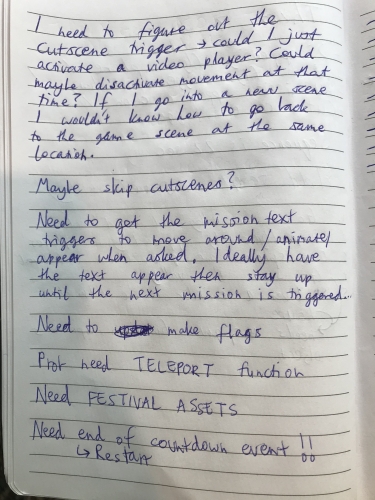 I need to figure out the
cutscene trigger → could I just
activate a video player? Could
maybe disactivate movement at that
time? If I go into a new scene
I wouldn't know how to go back
to the game scene at the same
location.
Maybe skip cutscenes?
Need to get the mission text
triggers to move around/animate/
appear when asked. Ideally have
the text appear then stay up
until the next mission is triggered...
Need to make flags
Prob need TELEPORT function
Need FESTIVAL ASSETS
Need end of countdown event !!
↳ Restart